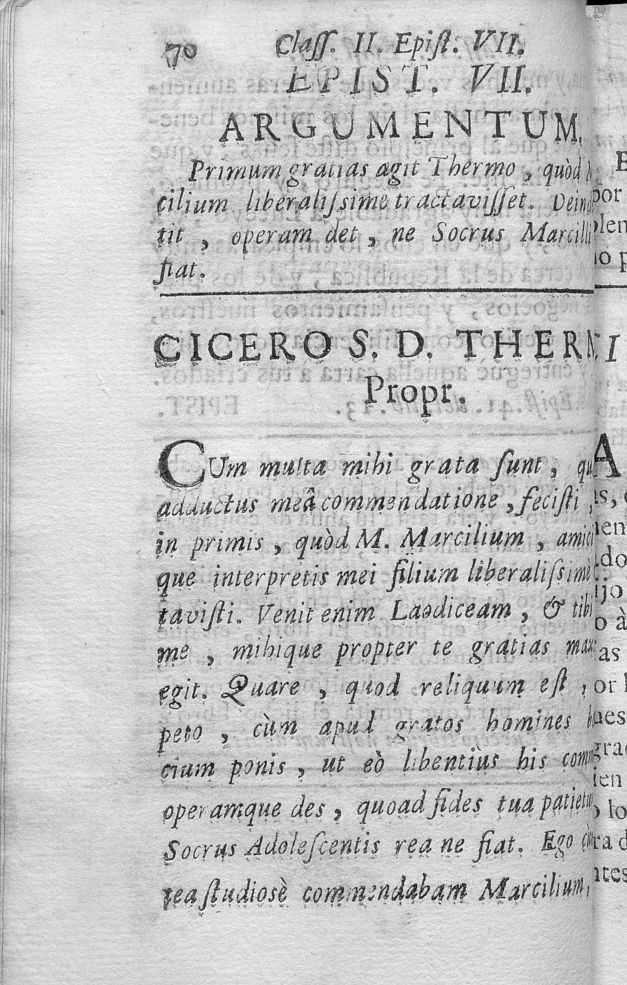 70 Claſſ. II. Epiſt. VII.
EPIST. VII.
ARGUMENTUM.
Primum gratias agit Thermo, quòd
cilium liberaliſsime tractaviſſet. Dein
tit, operam det, ne Socrus Marcilli
fiat.
CICERO S. D. THERM
Propr.
CUm multa mihi grata ſunt, qu
adductus meâ commendatione, feciſti,
in primis, quòd M. Marcilium, amici
que interpretis mei filium liberaliſsimè
taviſti. Venit enim Laodiceam, & tibi
me, mihique propter te gratias max
egit. Quare, quod reliquum eſt,
peto, cùm apud gratos homines b
cium ponis, ut eò libentius his com
operamque des, quoad fides tua patietu
Socrus Adoleſcentis rea ne fiat. Ego c
tea ſtudiosè commendabam Marcilium,